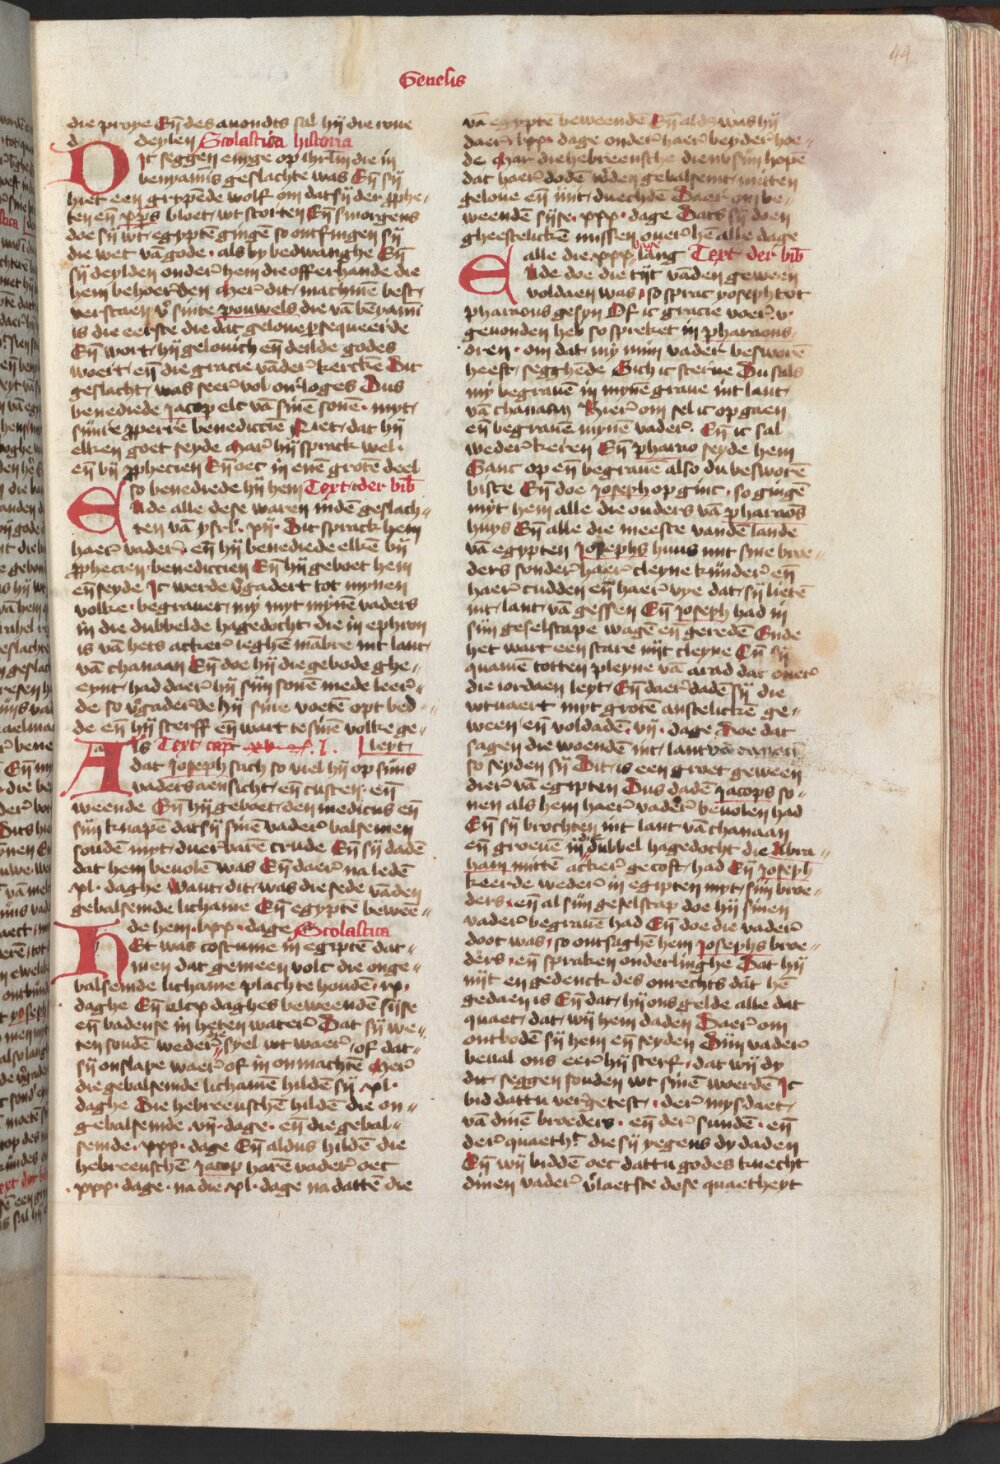 44
Genesis
die proye Eñ des auondts sal hij die roue
deylen Scolastica historia
Dit seggen enige op ihrlm die in
benyamīs geslachte was Eñ sij
hiet een gripēde wolf om dat sij der ꝓphe-
ten eñ xp̄s bloet wt storten Eñ smorgens
doe sij wt egyptē gingē so ontfingen sij
die wet vā gode · als by bedwanghe Eñ
sij deylden onder hem die offerhande die
hem behoerden Mer dit machmē best
verstaen vā sinte pouwels die vā benyamī
is die eerste die dat gelove ꝑsequeerde
Eñ wort hij gelouich eñ deilde godes
woert eñ die gracie vāder kerckē Dit
geslacht was seer vol orloges Dus
benediede jacop elc vā sinē sonē · myt
sinre ꝓperre benediccie Niet dat hij
elken goet seyde Mar hij sprack wel ·
eñ bij ꝓphecien Eñ oec in ene grote deel
so benediede hij hem Text der bib̄
Ende alle dese waren indē geslach-
ten vā ysrl · xij · Dit sprack hem
haer vader · eñ hij benediede elkē bij
ꝓphecien benediccien Eñ hij geboet hem
eñ seyde Ic werde v̄gadert tot mynen
volke · begrauet my myt mynē vaders
in die dubbelde hagedocht die in ephron
is vā hets acker teghē mābre int lant
vā chanaan Eñ doe hij die gebode ghe-
eynt had daer hij sijn sonē mede leer-
de so v̄gaderde hij sine voetē opt bed-
de eñ hij sterff eñ wart te sinē volke ge-
Als Text cap̄t xlv L leyt
dat joseph sach so viel hij op sijns
vaders aensicht eñ custen · eñ
weende Eñ hij geboet den medicus eñ
sijn knapē dat sij sinē vader balsemen
soudē myt duerbarē crude Eñ sij dadē
dat hem beuolē was Eñ daer na ledē
xl · daghe Want dit was die sede vādē
gebalsemde lichame Eñ egyptē beweē-
de hem · lxx · dage Scolastica
Het was costume in egiptē dat-
men dat gemeen volc die onge-
balsemde lichame plach te houdē · ix ·
daghe Eñ elcx daghes beweendē sijse
eñ badense in heten water Dat sij we-
ten soudē weder die syel wt waer of dat
sij onslape waer of in onmachtē Mer
die gebalsemde lichamē hildē sij xl ·
daghe Die hebreeuschē hildē die on-
gebalsemde · vij · dage · eñ die gebal-
semde · xxx · dage Eñ aldus hildē die
hebreeuschē jacop harē vader oec
xxx · dage · na die xl · dage na dattē die
vā egypte beweende Eñ aldr was hij
daer lxx · dage onder haer beyder hoe-
de Mar die hebreensche
dat haer dodē wden gebalsemt mitten
gelove eñ nyt duechdē Daer om be-
weendē sijse · xxx · dage Dats sij doen
gheestelickē missen ouer hē alle dage
alle die xxx dage lang Text der bib̄
Ende doe die tijt vādē geween
voldaen was so sprac yoseph tot
pharaons gesyn Of ic gracie voer v
geuonden heb so spreket in pharaons
oren · om dat my mijn vader besworē
heeft segghede Sich ic sterue Du sals
my begrauē in mynē graue int lant
vā chanaan Hier om sel ic op gaen
eñ begrauē mynē vader · Eñ ic sal
weder keren Eñ pharao seyde hem
Ganc op eñ begraue also du besworē
biste Eñ doe joseph op ginc · so gingē
myt hem alle die ouders vā pharaos
huys Eñ alle die meeste vandē lande
vā egypten josephs huus mit sine broe-
ders sonder haer cleyne kinder eñ
haer cudden eñ haer vye dat sij lietē
int lant vā gessen Eñ joseph had in
sijn geselscape wagē eñ geredē Ende
het wart een scare nijt cleyne Eñ sij
quamē totten pleyne vā arad dat ouer
die iordaen leyt Eñ daer dadē sij die
wtuaert myt grotē anstelickē ge-
ween eñ voldadē · vij · dage Doe dat
sagen die woendē int lant vā canaan
so seyden sij Dit is een groet geween
dier vā egipten Dus dadē jacops so-
nen als hem haer vader beuolen had
Eñ sij brochten int lant vā chanaan
eñ groeuē in die dubbel hagedocht die Abra-
ham mittē acker gecoft had Eñ joseph
keerde weder in egipten myt sijn broe-
ders · eñ al sijn geselscap doe hij sinen
vader begrauē had Eñ doe die vader
doot was so ontsaghē hem josephs broe-
ders · eñ spraken onderlinghe Dat hij
nijt en gedenck des onrechts dat hē
gedaen is Eñ dat hij ons gelde alle dat
quaet dat wij hem daden Daer om
ontbodē sij hem eñ seyden Dijn vader
beual ons eer hij sterf · dat wij dy
dit seggen souden wt sinē woerdē Ic
bid dattu vergetest · der mysdaet
vā dinē broeders · eñ der sunden · eñ
der quaeth t die sij yegens dy daden
Eñ wij biddē oec dattu godes knecht
dinen vader v̄laetste dese quaetheyt